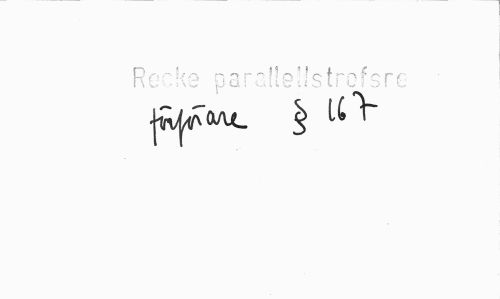 Recke parallellstrofsre
förförare § 167